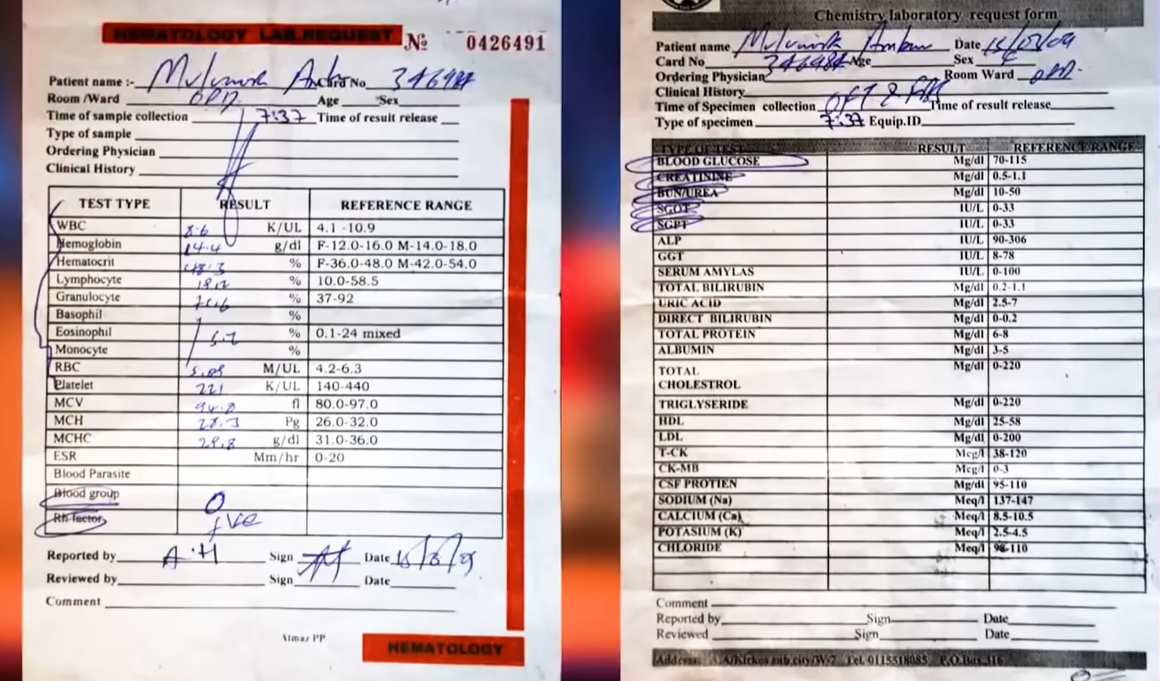 HEMATOLOGY LAB.REQUEST No 0426491
Patient name :- Card No 346984
Room /Ward OPD Age Sex
Time of sample collection 7:37 Time of result release
Type of sample
Ordering Physician
Clinical History
TEST TYPE RESULT REFERENCE RANGE
WBC 8.6 K/UL 4.1 -10.9
Hemoglobin 14.4 g/dl F-12.0-16.0 M-14.0-18.0
Hematocrit 48.3 % F-36.0-48.0 M-42.0-54.0
Lymphocyte % 10.0-58.5
Granulocyte % 37-92
Basophil %
Eosinophil % 0.1-24 mixed
Monocyte %
RBC M/UL 4.2-6.3
Platelet 221 K/UL 140-440
MCV fl 80.0-97.0
MCH 28.3 Pg 26.0-32.0
MCHC 29.8 g/dl 31.0-36.0
ESR Mm/hr 0-20
Blood Parasite
Blood group O
Rh factor +ve
Reported by A.H Sign Date
Reviewed by Sign Date
Comment
Almaz PP
HEMATOLOGY
Chemistry laboratory request form
Patient name Date
Card No 346984 Age Sex
Ordering Physician Room Ward OPD
Clinical History
Time of Specimen collection Time of result release
Type of specimen 7:37 Equip.ID
TYPE OF TEST RESULT REFERENCE RANGE
BLOOD GLUCOSE Mg/dl 70-115
CREATININE Mg/dl 0.5-1.1
BUN/UREA Mg/dl 10-50
SGOT IU/L 0-33
SGPT IU/L 0-33
ALP IU/L 90-306
GGT IU/L 8-78
SERUM AMYLAS IU/L 0-100
TOTAL BILIRUBIN Mg/dl 0.2-1.1
URIC ACID Mg/dl 2.5-7
DIRECT BILIRUBIN Mg/dl 0-0.2
TOTAL PROTEIN Mg/dl 6-8
ALBUMIN Mg/dl 3-5
TOTAL Mg/dl 0-220
CHOLESTROL
TRIGLYSERIDE Mg/dl 0-220
HDL Mg/dl 25-58
LDL Mg/dl 0-200
T-CK Mcg/l 38-120
CK-MB Mcg/l 0-3
CSF PROTIEN Mg/dl 95-110
SODIUM (Na) Meq/l 137-147
CALCIUM (Ca) Meq/l 8.5-10.5
POTASIUM (K) Meq/l 2.5-4.5
CHLORIDE Meq/l 98-110
Comment
Reported by Sign Date
Reviewed Sign Date
Address: A.A/Kirkos sub.city/W-7 Tel. 0115518085 P.O.Box 316